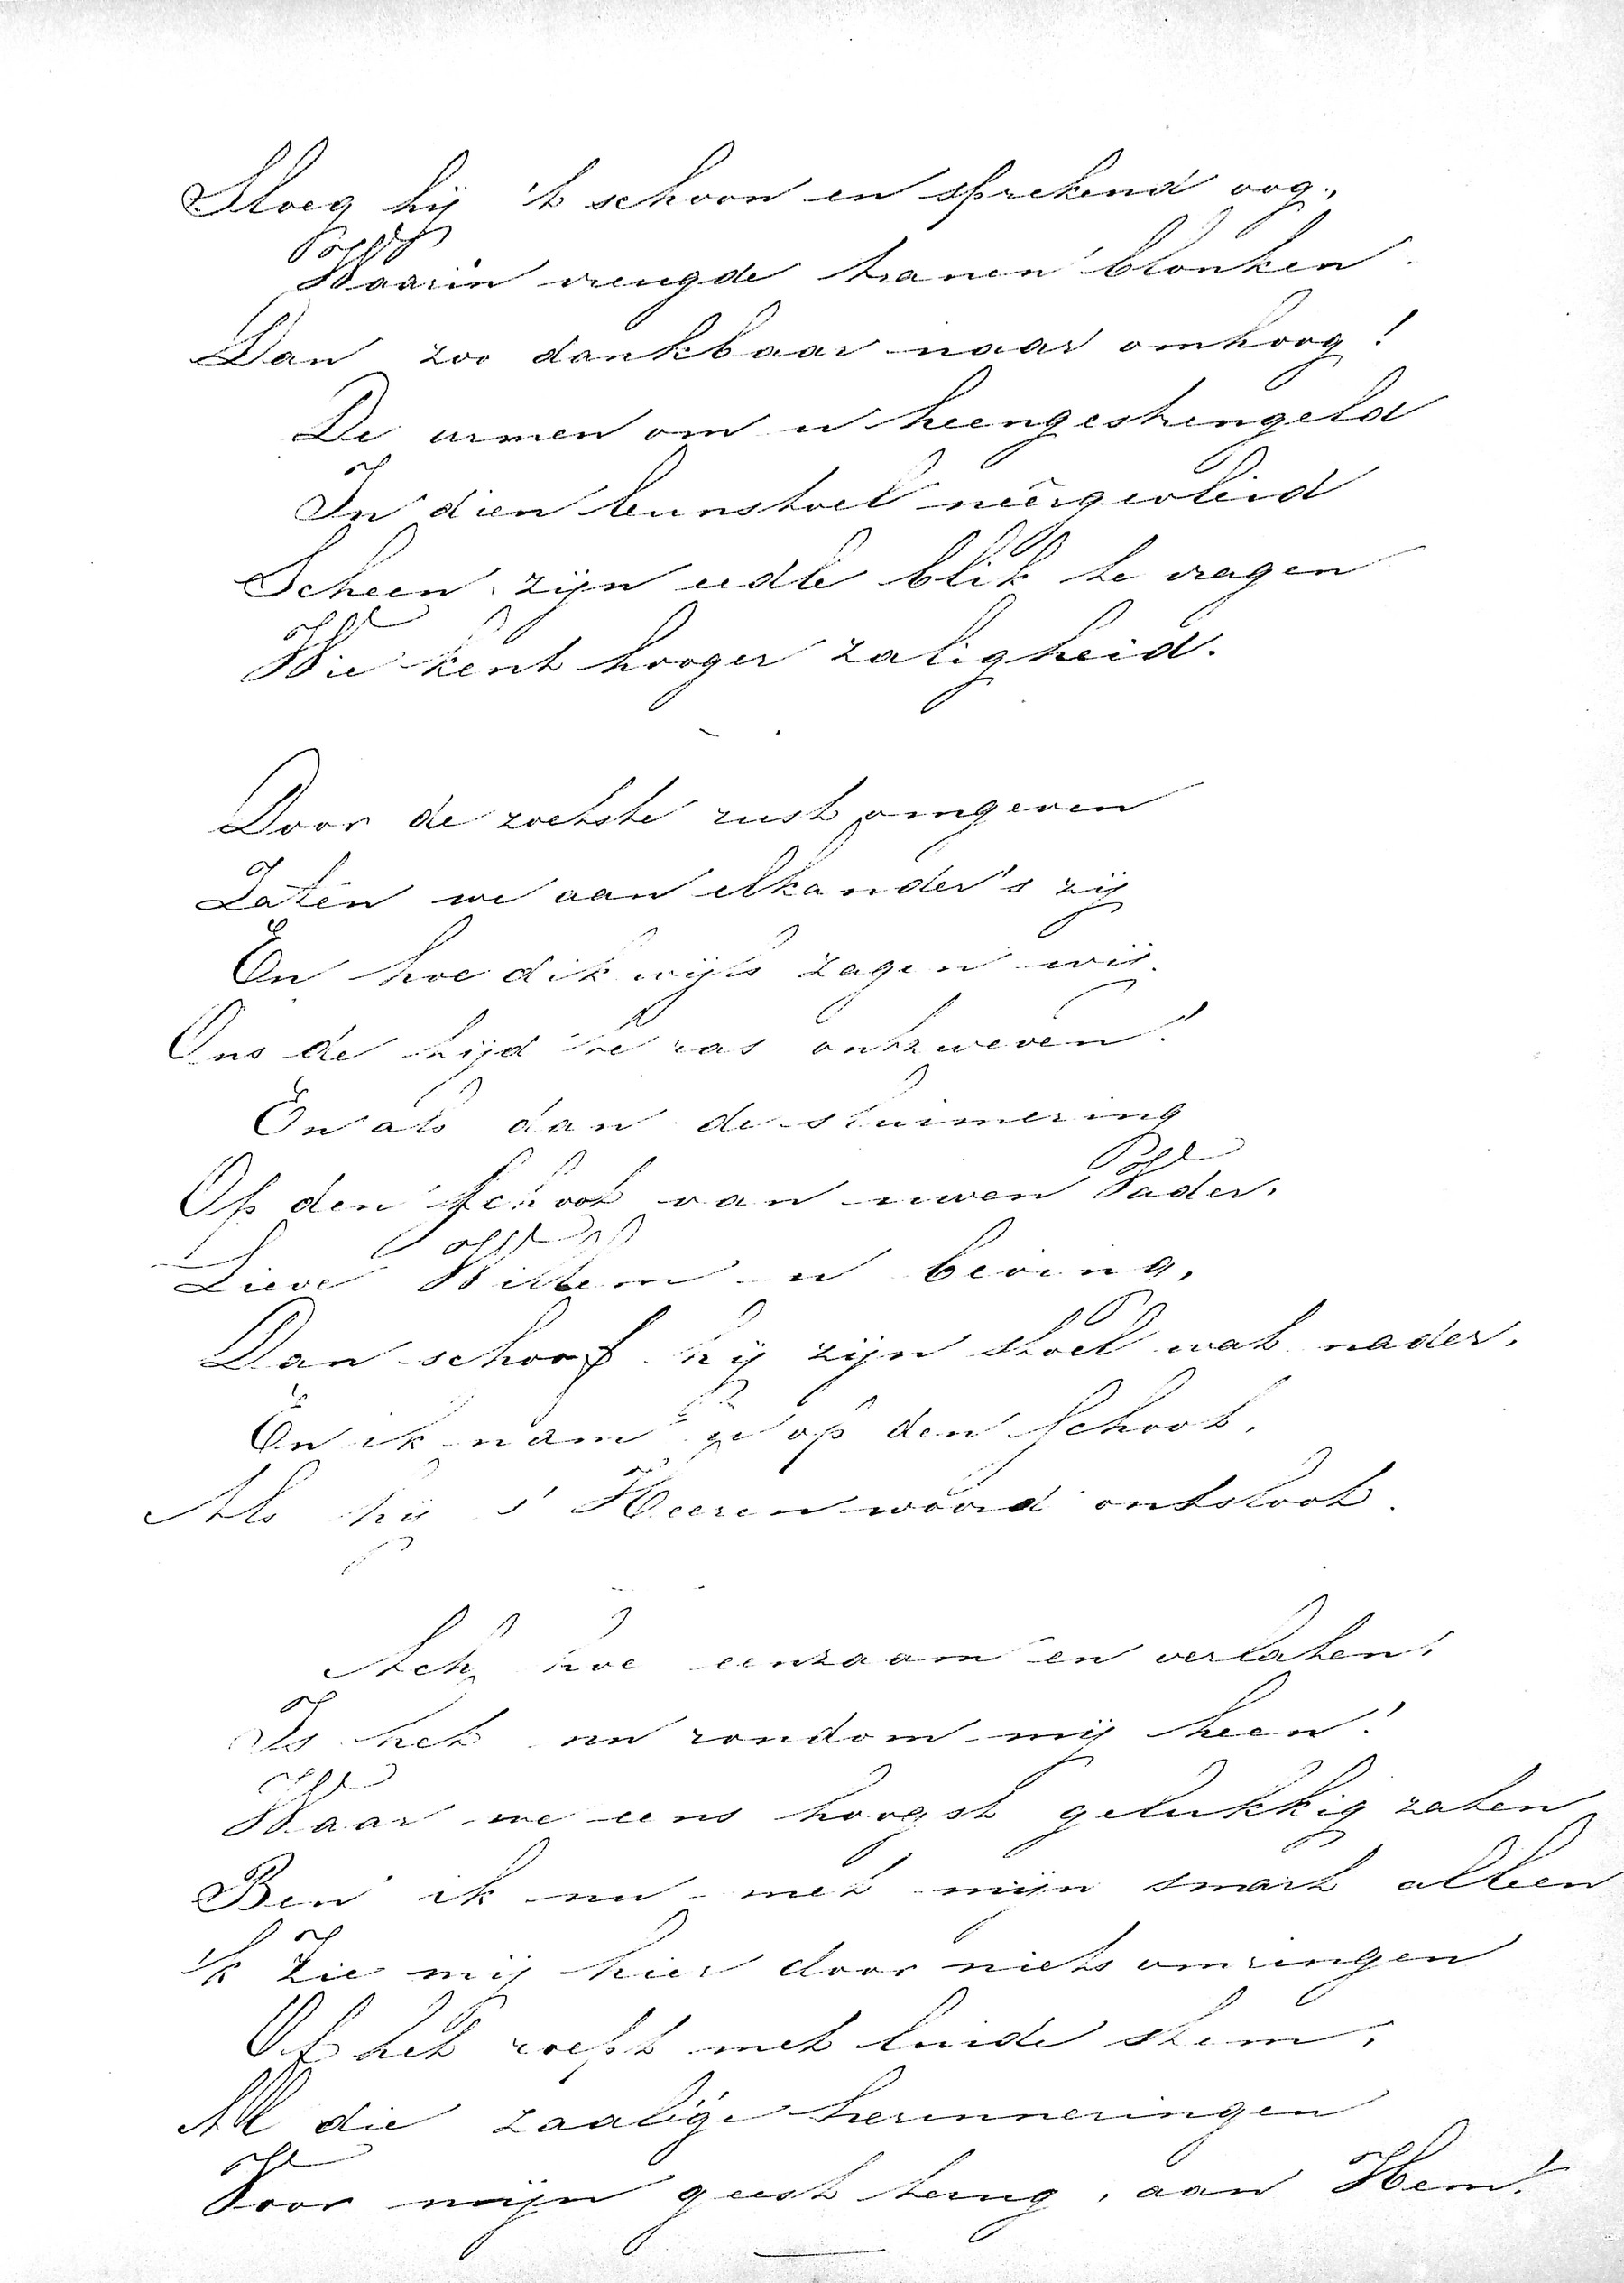 Sloeg hij 't schoon en sprekend oog,
Waarin vreugde tranen blonken.
Dan zoo dankbaar naar omhoog!
De armen om u heengestrengeld
In dien leunstoel neêrgevleid
Scheen zijn eedle blik te vragen
Wie kent hooger zaligheid.
Door de zoetste rust omgeven
Zaten we aan elkander's zij
En hoe dikwijls zagen wij.
Ons de tijd te ras ontzweven!
En als dan de sluimering
Op den schoot van uwen Vader,
Lieve Willem u beving,
Dan schoof hij zijn stoel wat nader,
En ik nam je op den schoot,
Als hij s' Heeren woord ontsloot.
Ach, hoe eenzaam en verlaten,
Is het nu rondom mij heen!
Waar we eens hoogst gelukkig zaten
Ben ik nu met mijn smart alleen
'k Zie mij hier door niets omringen
Of het roept met luide stem,
Al die zaalige herinneringen
Voor mijn geest terug, aan Hem!